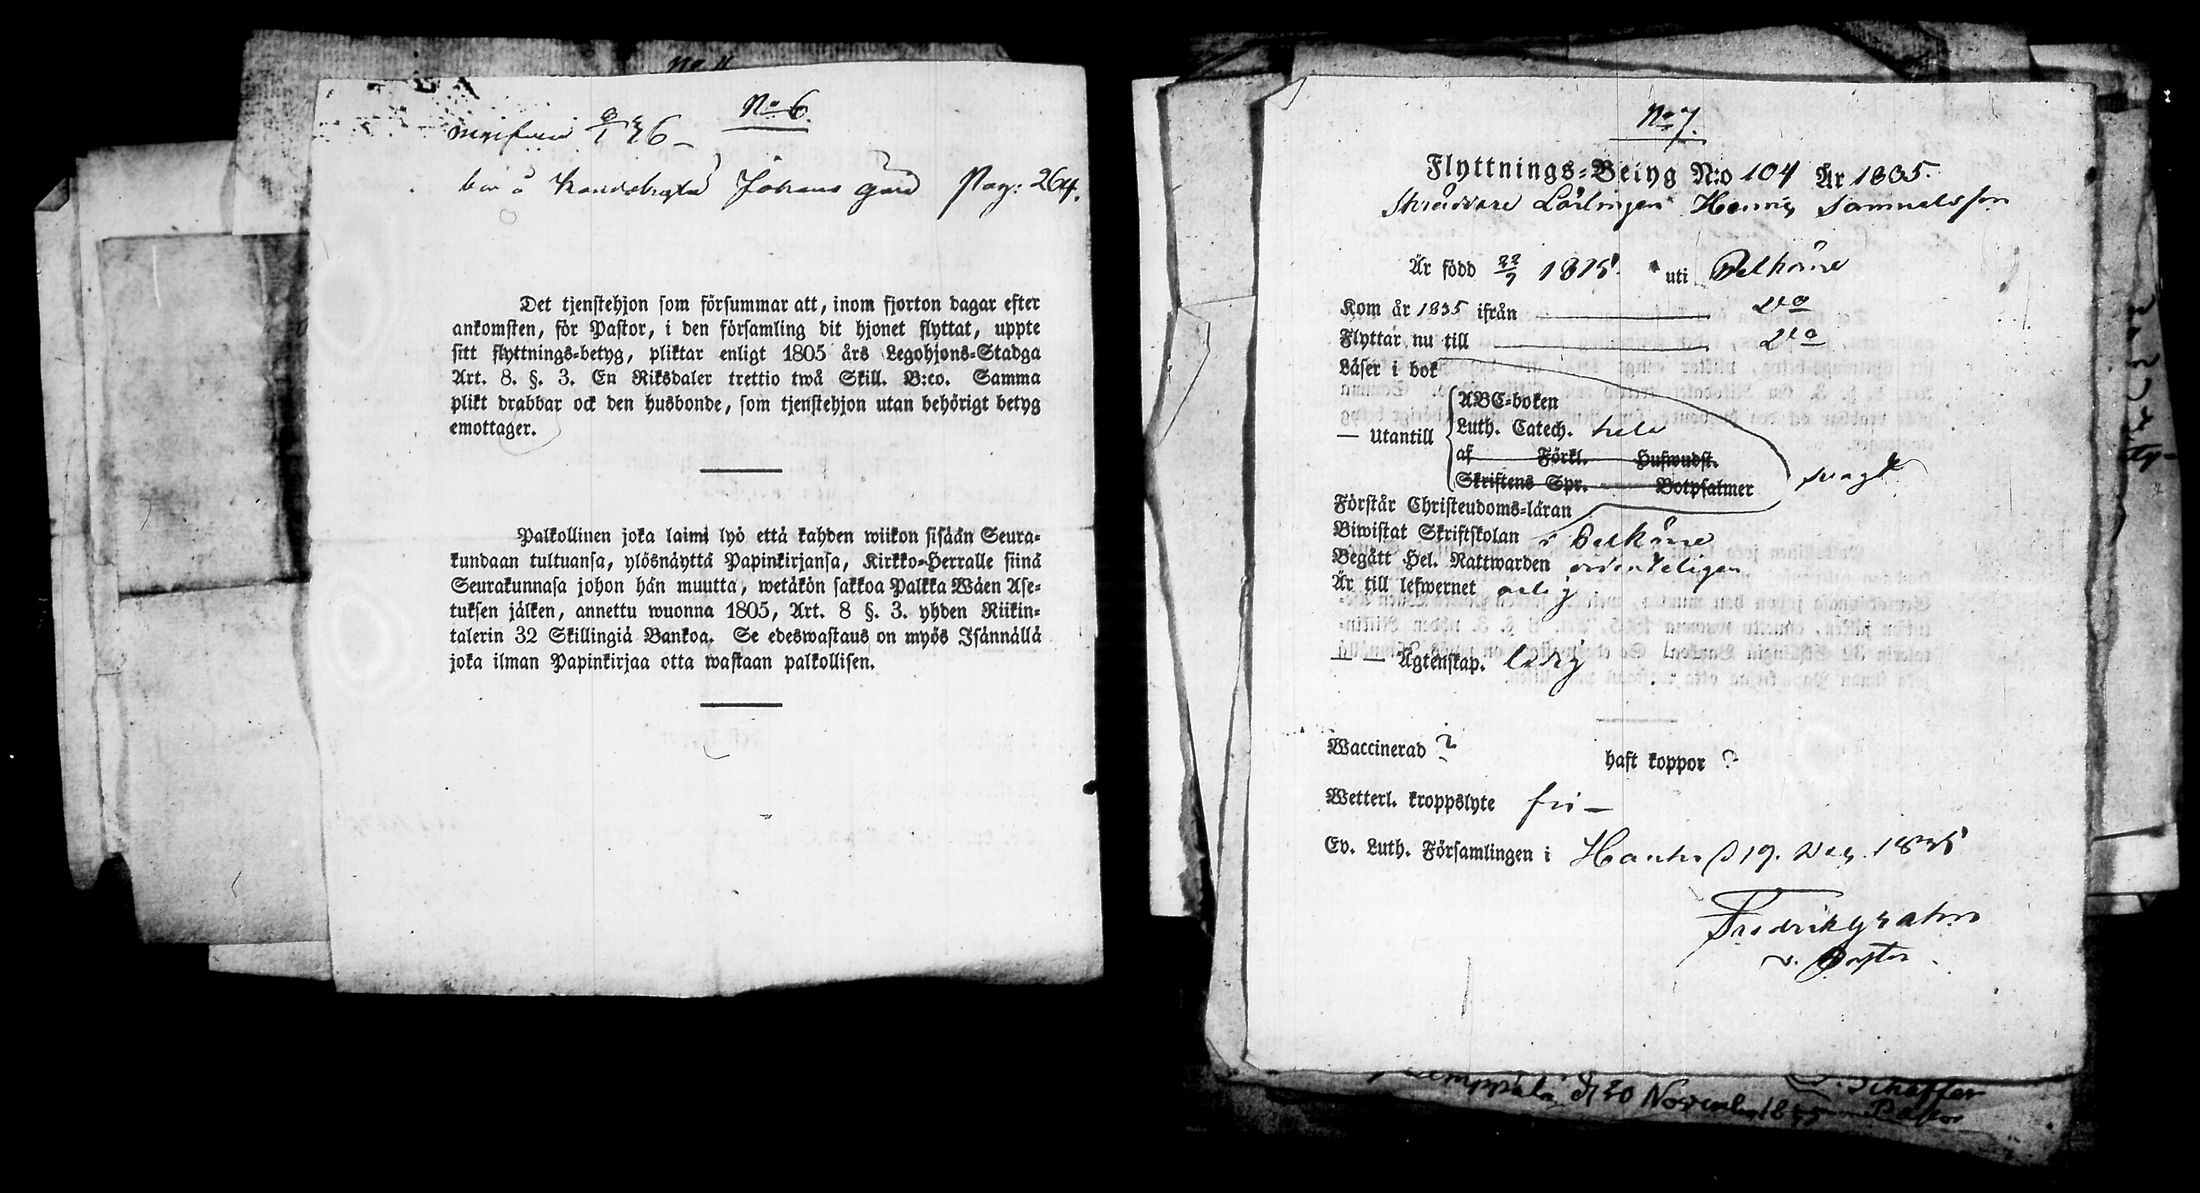 No 6.
bor å Johans gård Pag: 264.
Det tjenstehjon som försummar att, inom fjorton dagar efter
ankomsten, för Pastor, i den församling dit hjonet flyttat, uppte
sitt flyttnings-betyg, pliktar enligt 1805 års Legohjons-Stadga
Art. 8. §. 3. En Riksdaler trettio twå Skill. B:co. Samma
plikt drabbar ock den husbonde, som tjenstehjon utan behörigt betyg
emottager.
Palkollinen joka laimi lyö että kahden wiikon sisään Seura-
kundaan tultuansa, ylösnäyttä Papinkirjansa, Kirkko-Herralle siinä
Seurakunnasa johon hän muutta, wetäkön sakkoa Palkka Wäen Ase-
tuksen jälken, annettu wuonna 1805, Art. 8 §. 3. yhden Riikin-
talerin 32 Skillingiä Bankoa. Se edeswastaus on myös Isännällä
joka ilman Papinkirjaa otta wastaan palkollisen.
No 7.
Flyttnings-Betyg N:o 104 År 1835.
Skräddare Lärlingen Henric Samuelsson
Är född 22/9 1815. uti Pelkäne
Kom år 1835 ifrån do
Flyttar nu till do
Läser i bok
— Utantill
ABC-boken
Luth. Catech. hela
af Förkl. Hufwudst.
Skriftens Spr. Botpsalmer
svagt
Förstår Christendoms-läran
Biwistat Skriftskolan i Pelkäne
Begått Hel. Nattwarden ordenteligen
Är till lefwernet
— — Ägtenskap. ledig
Waccinerad ?
haft koppor ?
Wetterl. kroppslyte fri —
Ev. Luth. Församlingen i Hauho d 19. Dec. 1835
Fredrik Grahn
v. Pastor
d 20 November 1835
Schäffer
Pastor